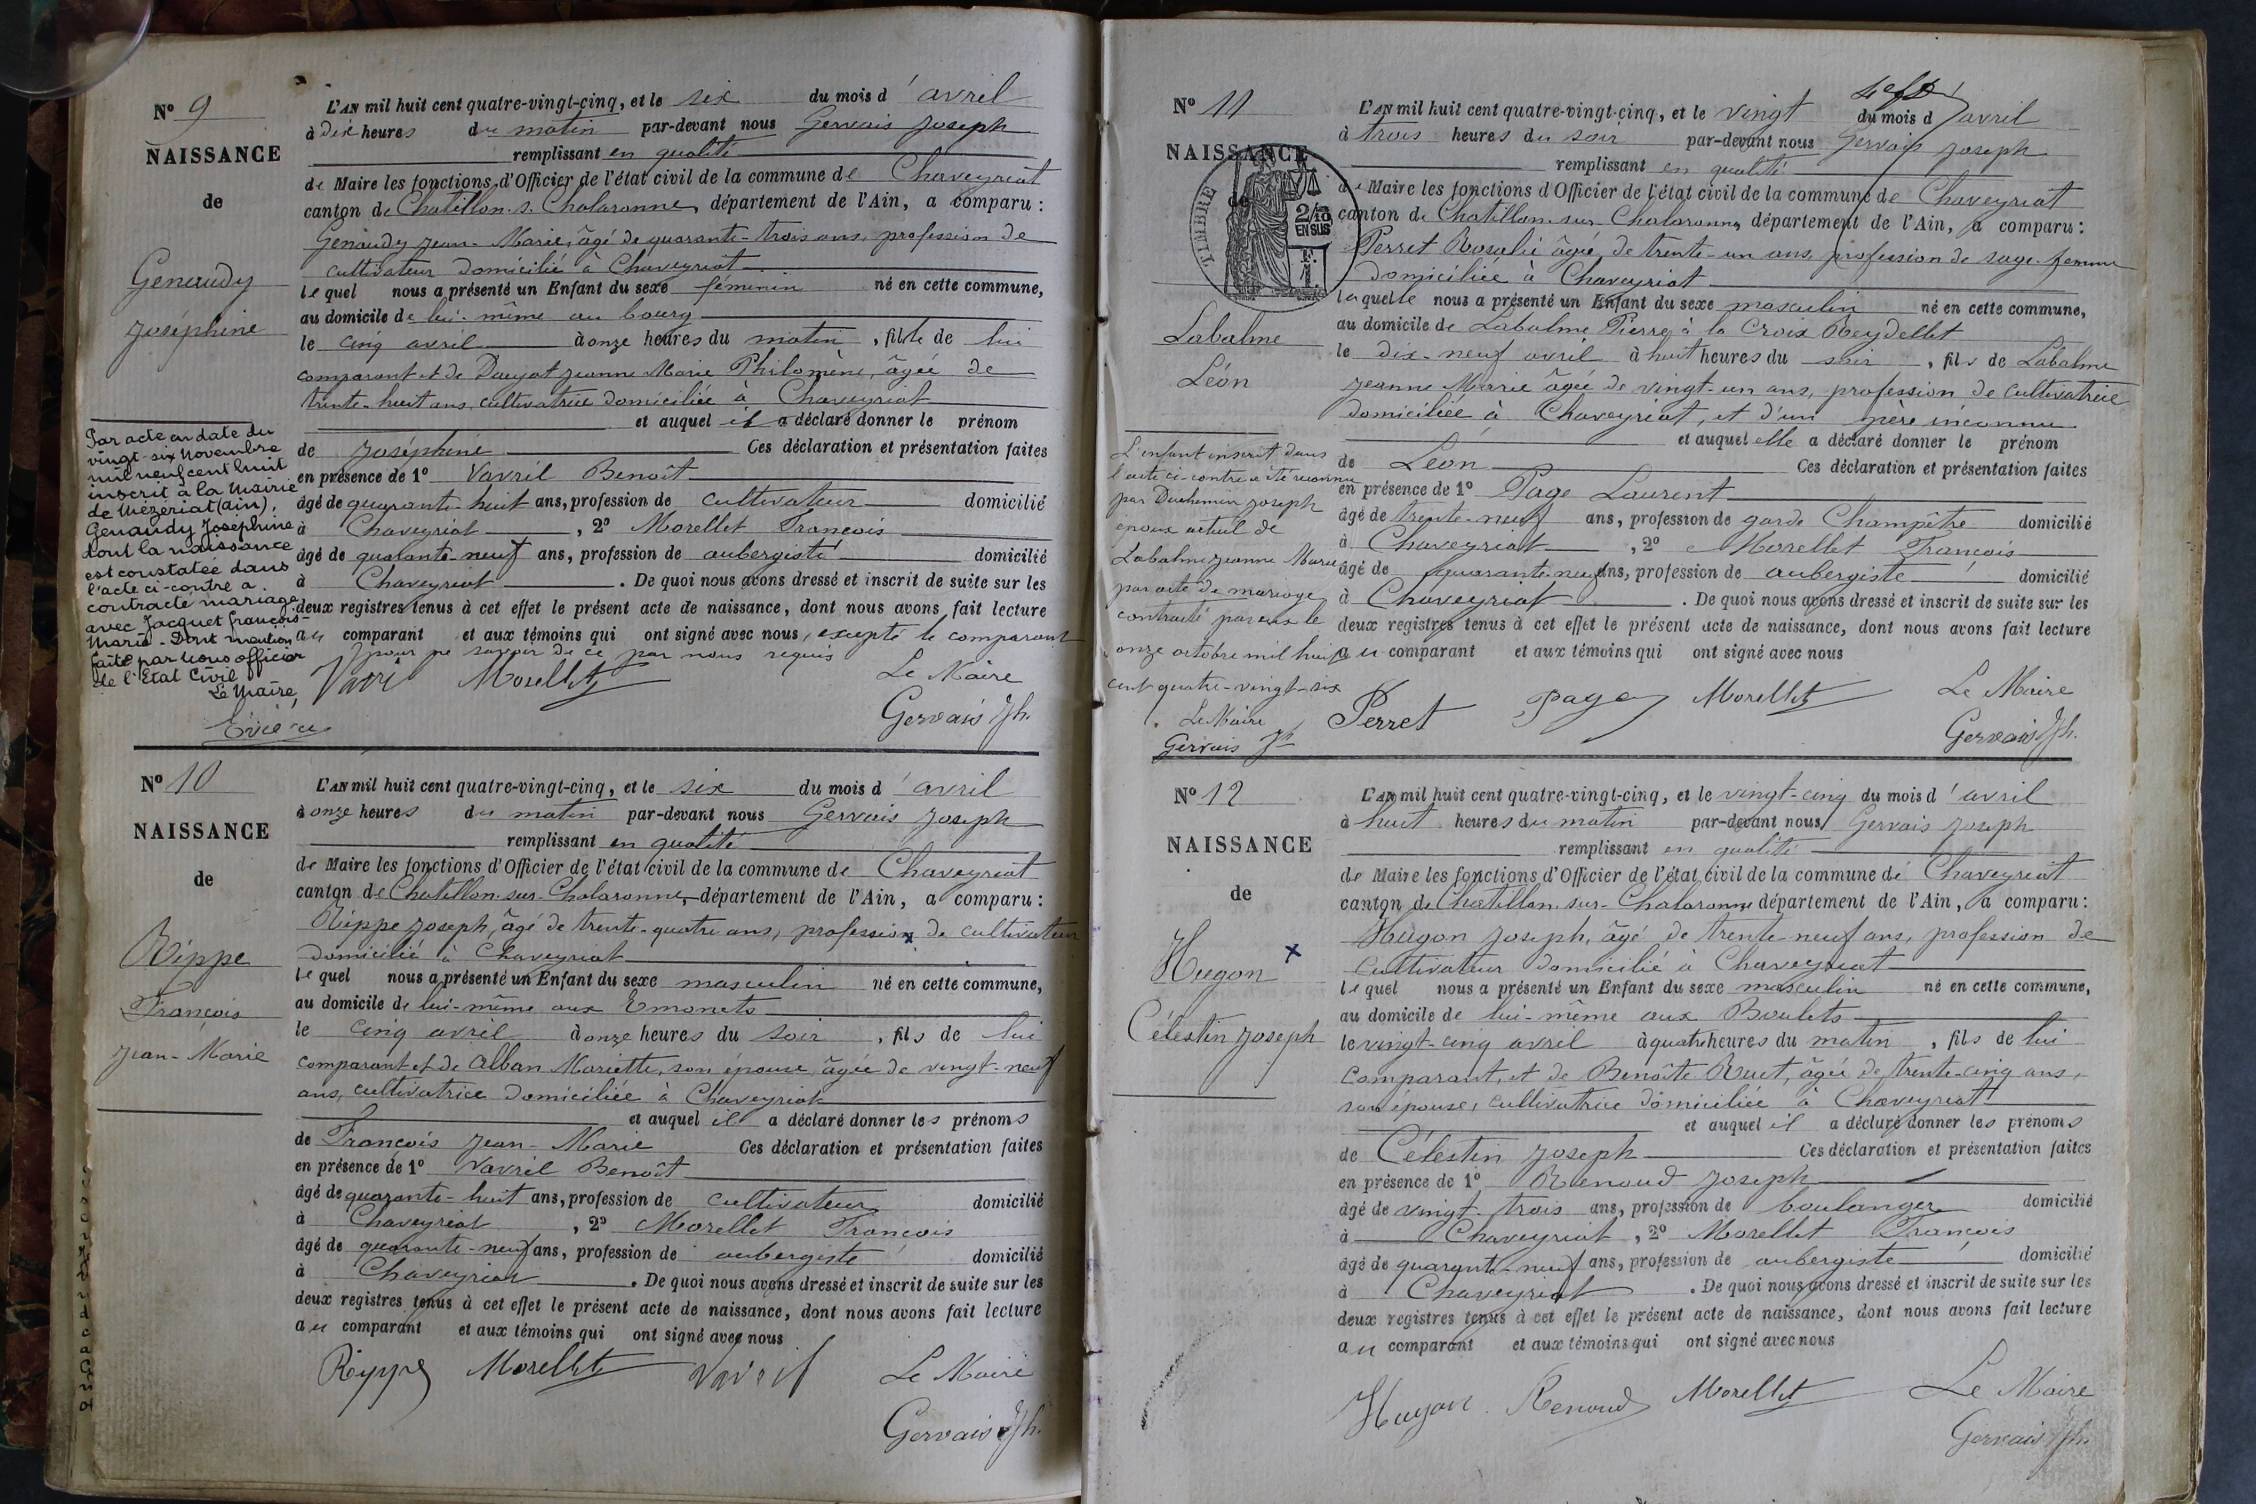 Nº 9
NAISSANCE
de
Genaudy
Joséphine
Par acte en date du
vingt-six Novembre
mil neuf cent huit
inscrit à la Mairie
de Mézériat (ain),
Genaudy Joséphine
dont la naissance
est constatée dans
l'acte ci-contre a
contracté mariage
avec Jacquet françois-
Marie - Dont mention
faite par nous officier
de l'Etat Civil
Le Maire,
L'AN mil huit cent quatre-vingt-cinq, et le six du mois d'avril
à dix heures du matin par-devant nous Gervais Joseph
remplissant en qualité
de Maire les fonctions d'Officier de l'état civil de la commune de Chaveyriat
canton de Chatillon-s-Chalaronne, département de l'Ain, a comparu :
Genaudy Jean-Marie, âgé de quarante-trois ans, profession de
cultivateur domicilié à Chaveyriat
lequel nous a présenté un Enfant du sexe féminin né en cette commune,
au domicile de lui-même au bourg
le cinq avril à onze heures du matin, fille de lui
comparant et de Jeanne Marie Philomène, âgée de
trente-huit ans, cultivatrice domiciliée à Chaveyriat
et auquel il a déclaré donner le prénom
de Joséphine Ces déclaration et présentation faites
en présence de 1º Vavril Benoît
âgé de quarante-huit ans, profession de cultivateur domicilié
à Chaveyriat, 2º Morellet François
âgé de quarante-neuf ans, profession de aubergiste domicilié
à Chaveyriat. De quoi nous avons dressé et inscrit de suite sur les
deux registres tenus à cet effet le présent acte de naissance, dont nous avons fait lecture
au comparant et aux témoins qui ont signé avec nous, excepté le comparant
pour ne savoir de ce par nous requis
Vavril Morellet Le Maire
Gervais Jh.
Nº 10
NAISSANCE
de
Rippe
François
Jean-Marie
L'AN mil huit cent quatre-vingt-cinq, et le six du mois d'avril
à onze heures du matin par-devant nous Gervais Joseph
remplissant en qualité
de Maire les fonctions d'Officier de l'état civil de la commune de Chaveyriat
canton de Chatillon-sur-Chalaronne, département de l'Ain, a comparu :
Rippe Joseph, âgé de trente-quatre ans, profession de cultivateur
domicilié à Chaveyriat
lequel nous a présenté un Enfant du sexe masculin né en cette commune,
au domicile de lui-même aux Emonets
le cinq avril à onze heures du soir, fils de lui
comparant et de Alban Mariette, son épouse, âgée de vingt-neuf
ans, cultivatrice domiciliée à Chaveyriat
et auquel il a déclaré donner les prénoms
de François Jean-Marie Ces déclaration et présentation faites
en présence de 1º Vavril Benoît
âgé de quarante-huit ans, profession de cultivateur domicilié
à Chaveyriat, 2º Morellet François
âgé de quarante-neuf ans, profession de aubergiste domicilié
à Chaveyriat. De quoi nous avons dressé et inscrit de suite sur les
deux registres tenus à cet effet le présent acte de naissance, dont nous avons fait lecture
au comparant et aux témoins qui ont signé avec nous
Rippe Morellet Vavril Le Maire
Gervais Jh.
Nº 11
NAISSANCE
de
TIMBRE
2/10
EN SUS
Labalme
Léon
L'enfant inscrit dans
l'acte ci-contre a été reconnu
par Duchemin Joseph
époux actuel de
Labalme Jeanne Marie
par acte de mariage
contracté par eux le
onze octobre mil huit
cent quatre-vingt-six
Le Maire
Gervais Jh
L'AN mil huit cent quatre-vingt-cinq, et le vingt du mois d'avril
à trois heures du soir par-devant nous Gervais Joseph
remplissant en qualité
de Maire les fonctions d'Officier de l'état civil de la commune de Chaveyriat
canton de Chatillon-sur-Chalaronne, département de l'Ain, a comparu :
Perret Rosalie âgée de trente-un ans, profession de sage-femme
domiciliée à Chaveyriat
laquelle nous a présenté un Enfant du sexe masculin né en cette commune,
au domicile de Labalme Pierre, à la Croix Reydellet
le dix-neuf avril à huit heures du soir, fils de Labalme
Jeanne Marie âgée de vingt-un ans, profession de cultivatrice
domiciliée à Chaveyriat, et d'un père inconnu
et auquel elle a déclaré donner le prénom
de Léon Ces déclaration et présentation faites
en présence de 1º Page Laurent
âgé de trente-neuf ans, profession de garde Champêtre domicilié
à Chaveyriat, 2º Morellet François
âgé de quarante-neuf ans, profession de aubergiste domicilié
à Chaveyriat. De quoi nous avons dressé et inscrit de suite sur les
deux registres tenus à cet effet le présent acte de naissance, dont nous avons fait lecture
au comparant et aux témoins qui ont signé avec nous
Perret Page Morellet Le Maire
Gervais Jh.
Nº 12
NAISSANCE
de
Hugon x
Célestin Joseph
L'AN mil huit cent quatre-vingt-cinq, et le vingt-cinq du mois d'avril
à huit heures du matin par-devant nous Gervais Joseph
remplissant en qualité
de Maire les fonctions d'Officier de l'état civil de la commune de Chaveyriat
canton de Chatillon-sur-Chalaronne département de l'Ain, a comparu :
Hugon Joseph, âgé de trente neuf ans, profession de
cultivateur domicilié à Chaveyriat
lequel nous a présenté un Enfant du sexe masculin né en cette commune,
au domicile de lui-même aux Boulets
le vingt-cinq avril à quatre heures du matin, fils de lui
comparant, et de Benoîte Ruet, âgée de trente-cinq ans,
son épouse, cultivatrice domiciliée à Chaveyriat
et auquel il a déclaré donner les prénoms
de Célestin Joseph Ces déclaration et présentation faites
en présence de 1º Renoud Joseph
âgé de vingt-trois ans, profession de boulanger domicilié
à Chaveyriat, 2º Morellet François
âgé de quarante-neuf ans, profession de aubergiste domicilié
à Chaveyriat. De quoi nous avons dressé et inscrit de suite sur les
deux registres tenus à cet effet le présent acte de naissance, dont nous avons fait lecture
au comparant et aux témoins qui ont signé avec nous
Hugon Renoud Morellet Le Maire
Gervais Jh.